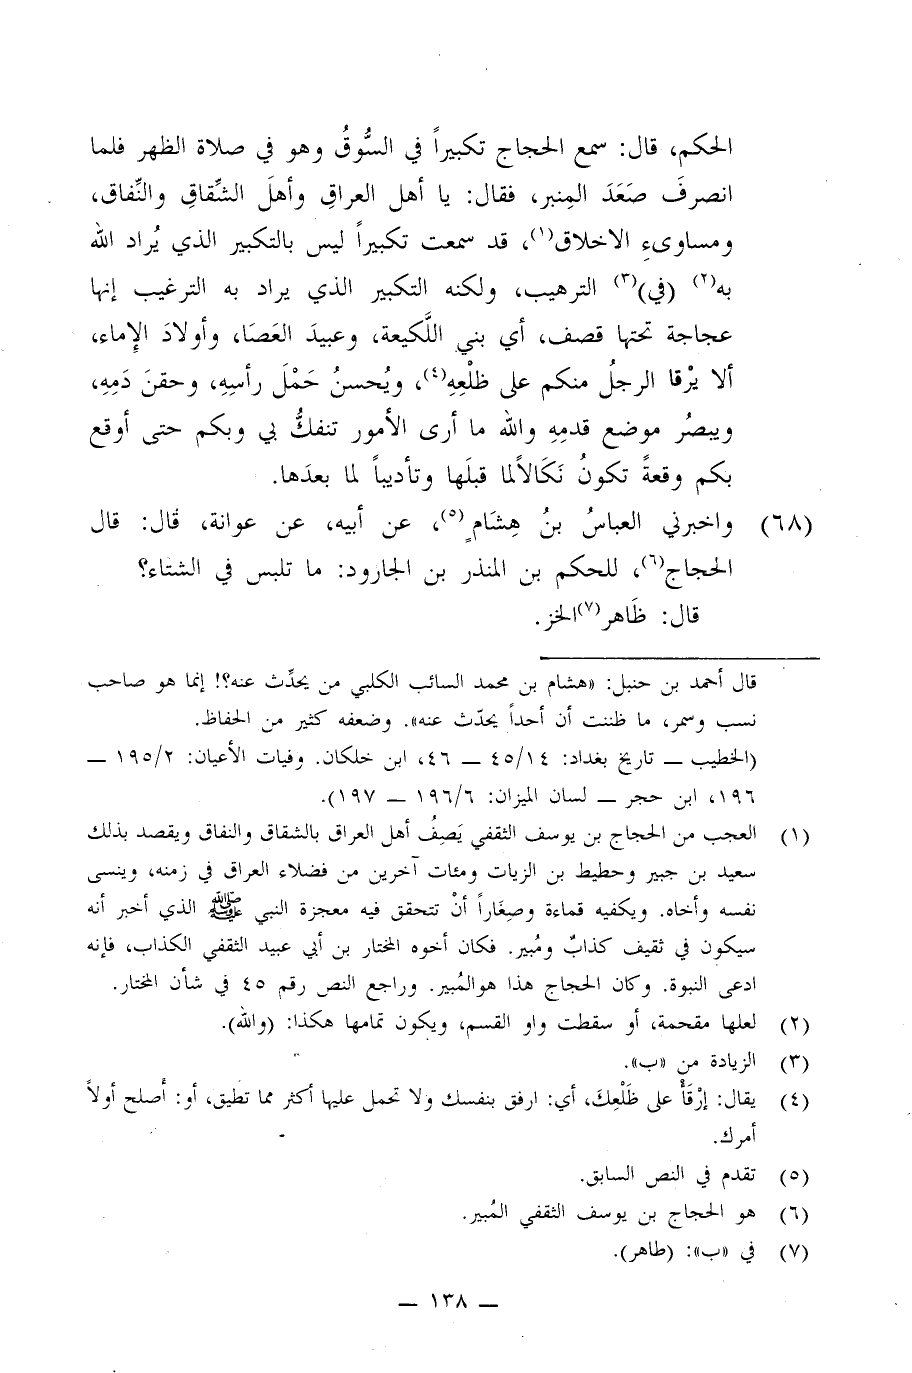 الحكم، قال: سمع الحجاج تكبيراً في السُّوقُ وهو في صلاة الظهر فلما
انصرفَ صَعَدَ المِنبر، فقال: يا أهل العراقِ وأهلَ الشِّقاقِ والنِّفاق،
ومساوىءِ الاخلاق(١)، قد سمعت تكبيراً ليس بالتكبير الذي يُراد الله
به(٢) (في)(٣) الترهيب، ولكنه التكبير الذي يراد به الترغيب إنها
عجاجة تحتها قصف، أي بني اللَّكيعة، وعبيدَ العَصَا، وأولادَ الإِماء،
ألا يرْقا الرجلُ منكم على ظلْعِهِ(٤)، ويُحسنُ حَمْلَ رأسِهِ، وحقنَ دَمِهِ،
ويبصرُ موضع قدمِهِ والله ما أرى الأمور تنفكُّ بي وبكم حتى أوقع
بكم وقعةً تكونُ نَكَالاًلما قبلَها وتأديباً لما بعدَها.
(٦٨) واخبرني العباسُ بنُ هِشَامٍ(٥)، عن أبيه، عن عوانة، قَال: قال
الحجاج(٦)، للحكم بن المنذر بن الجارود: ما تلبس في الشتاء؟
قال: ظَاهر(٧)الخز.
قال أحمد بن حنبل: «هشام بن محمد السائب الكلبي من يحدِّث عنه؟! إنما هو صاحب
نسب وسمر، ما ظننت أن أحداً يحدّث عنه». وضعفه كثير من الحفاظ.
(الخطيب ــ تاريخ بغداد: ٤٥/١٤ ــ ٤٦، ابن خلكان. وفيات الأعيان: ١٩٥/٢ ــ
١٩٦، ابن حجر ــ لسان الميزان: ١٩٦/٦ ــ ١٩٧).
(١) العجب من الحجاج بن يوسف الثقفي يَصِفُ أهل العراق بالشقاق والنفاق ويقصد بذلك
سعيد بن جبير وحطيط بن الزيات ومئات آخرين من فضلاء العراق في زمنه، وينسى
نفسه وأخاه. ويكفيه قماءة وصِغَاراً أنْ تتحقق فيه معجزة النبي ﷺ الذي أخبر أنه
سيكون في ثقيف كذابٌ ومُبير. فكان أخوه المختار بن أبي عبيد الثقفي الكذاب، فإنه
ادعى النبوة. وكان الحجاج هذا هوالمُبير. وراجع النص رقم ٤٥ في شأن المختار.
(٢) لعلها مقحمة، أو سقطت واو القسم، ويكون تمامها هكذا: (والله).
(٣) الزيادة من «ب».
(٤) يقال: إرْقَأْ على ظَلْعِكَ، أي: ارفق بنفسك ولا تحمل عليها أكثر مما تطيق، أو: أُصلح أولاً
أمرك.
(٥) تقدم في النص السابق.
(٦) هو الحجاج بن يوسف الثقفي المُبير.
(٧) في «ب»: (طاهر).
ــ ١٣٨ ــ